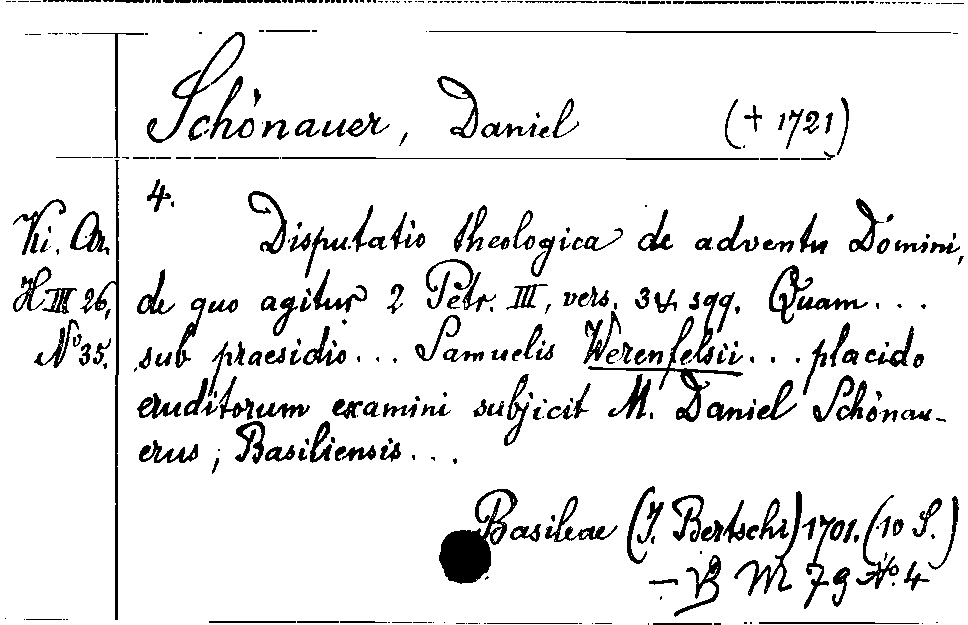 Schönauer, Daniel († 1721)
4.
Ki. Ar. Disputatio theologica de adventu Domini,
H III 26, de quo agitur 2 Petr. III, vers. 3 & sqq. Quam...
No 35. sub praesidio... Samuelis Werenfelsii... placido
eruditorum examini subjicit M. Daniel Schönau-
erus, Basiliensis...
Basileae (J. Bertschi) 1701. (10 S.)
— B M 7g No. 4